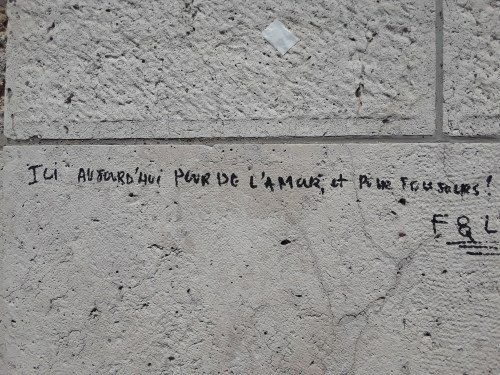 ICI AUJOURD'HUI POUR DE L'AMOUR, et POUR TOUJOURS!
F & L